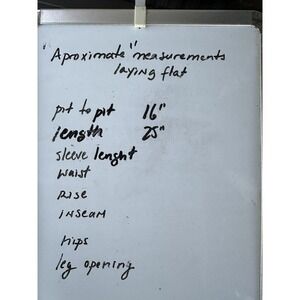 "Aproximate" measurements
laying flat
pit to pit 16"
length 25"
sleeve lenght
waist
Rise
inseam
hips
leg opening